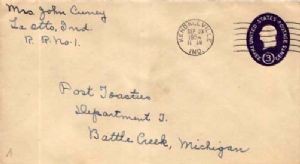 Mrs. John Curney
La Otto, Ind
R. R. No. 1.
KENDALLVILLE,
SEP
11 AM
IND.
UNITED STATES POSTAGE
3
THREE CENTS
Post Toasties
Department I.
Battle Creek, Michigan